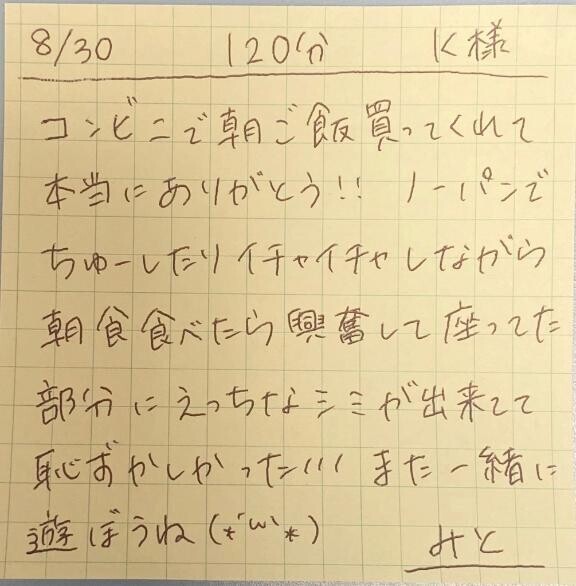 8/30 120分 K様
コンビニで朝ご飯買ってくれて
本当にありがとう!! ノーパンで
ちゅーしたりイチャイチャしながら
朝食食べたら興奮して座ってた
部分にえっちなシミが出来てて
恥ずかしかった/// また一緒に
遊ぼうね(*´ω`*) みと